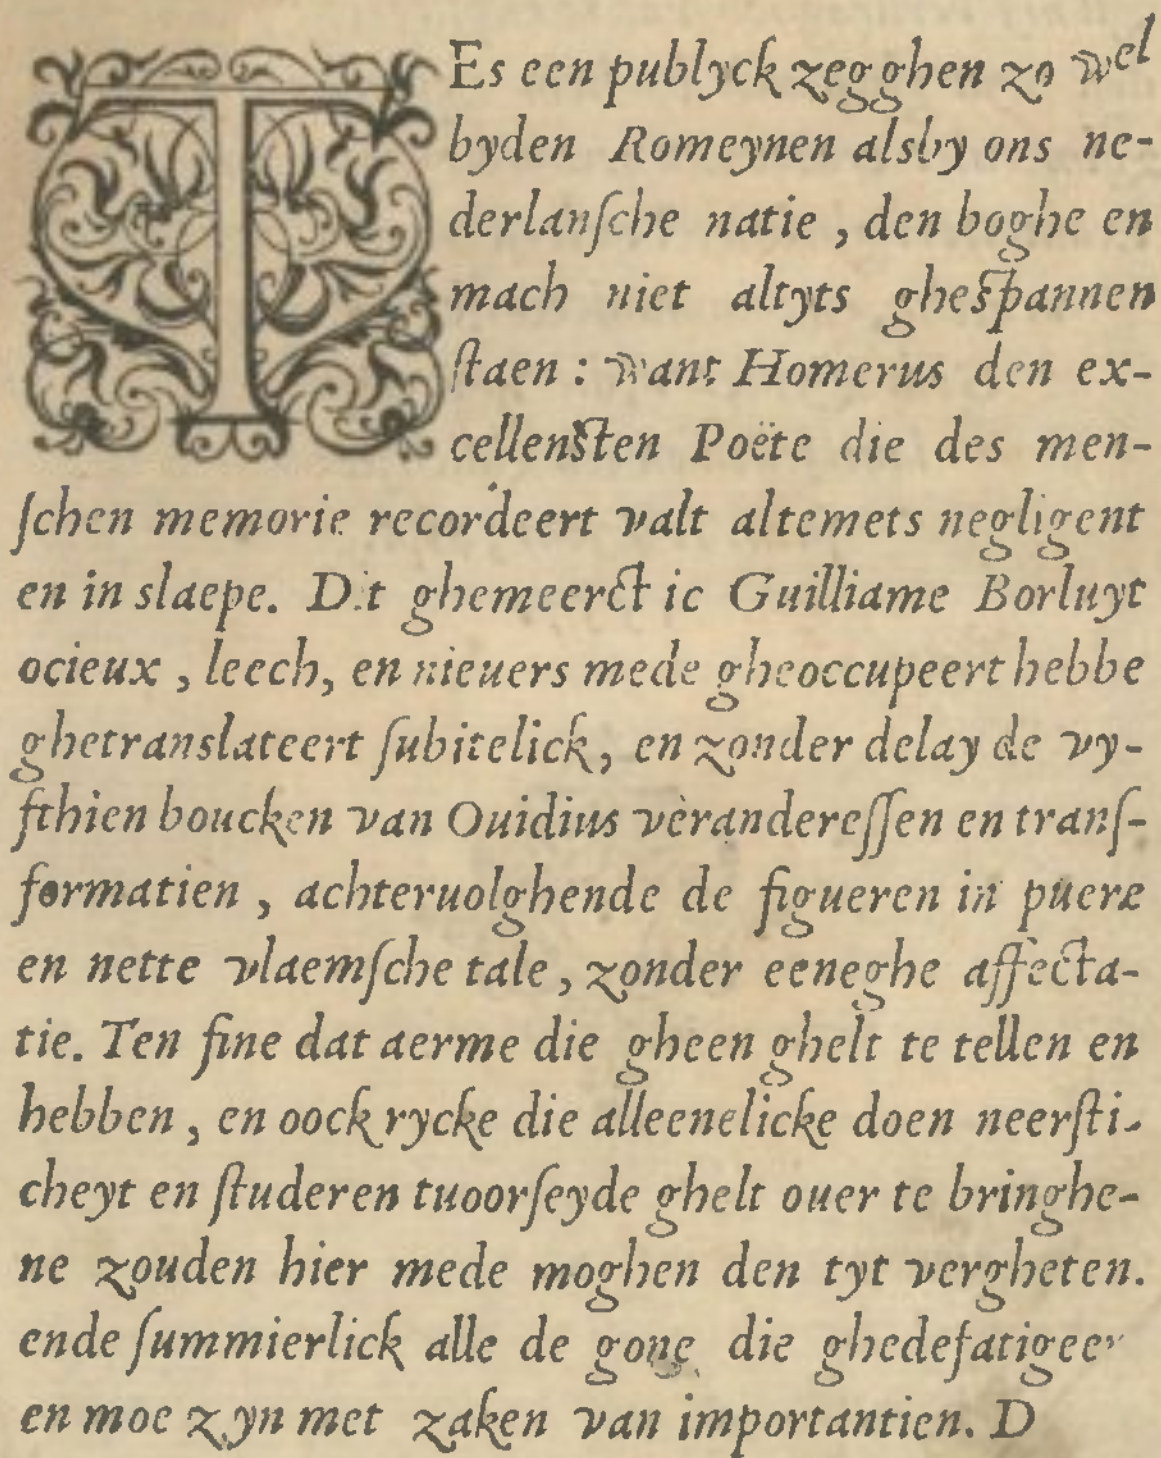 TEs een publyck zegghen zo wel
byden Romeynen alsby ons ne-
derlanſche natie , den boghe en
mach niet altyts gheſpannen
ſtaen : want Homerus den ex-
cellenſten Poëte die des men-
ſchen memorie recordeert valt altemets negligent
en in slaepe. Dit ghemeerct ic Guilliame Borluyt
ocieux , leech, en nieuers mede gheoccupeert hebbe
ghetranslateert ſubitelick, en zonder delay de vy-
fthien boucken van Ouidius verandereſſen en tranſ-
formatien , achteruolghende de figueren in puere
en nette vlaemſche tale , zonder eeneghe affecta-
tie. Ten fine dat aerme die gheen ghelt te tellen en
hebben , en oock rycke die alleenelicke doen neerſti-
cheyt en ſtuderen tuoorſeyde ghelt ouer te bringhe-
ne zouden hier mede moghen den tyt vergheten.
ende ſummierlick alle de gone die ghedefatigeer
en moe zyn met zaken van importantien. D